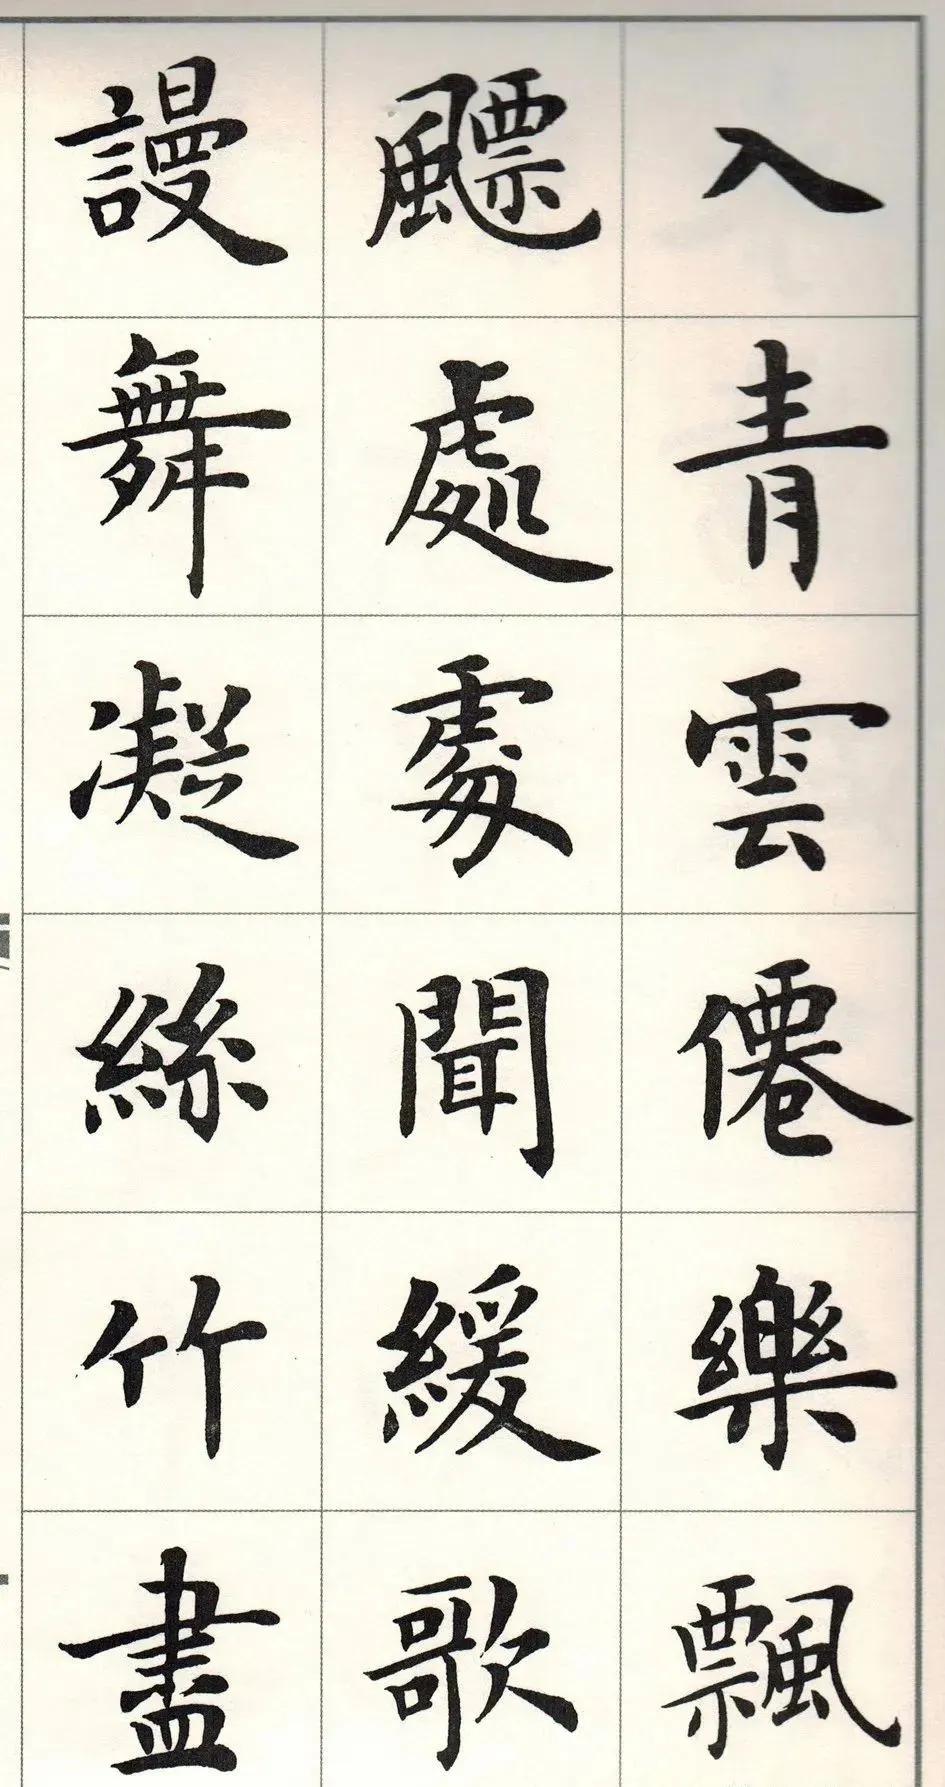 入青雲僊樂飄
飃處處聞緩歌
謾舞凝絲竹盡